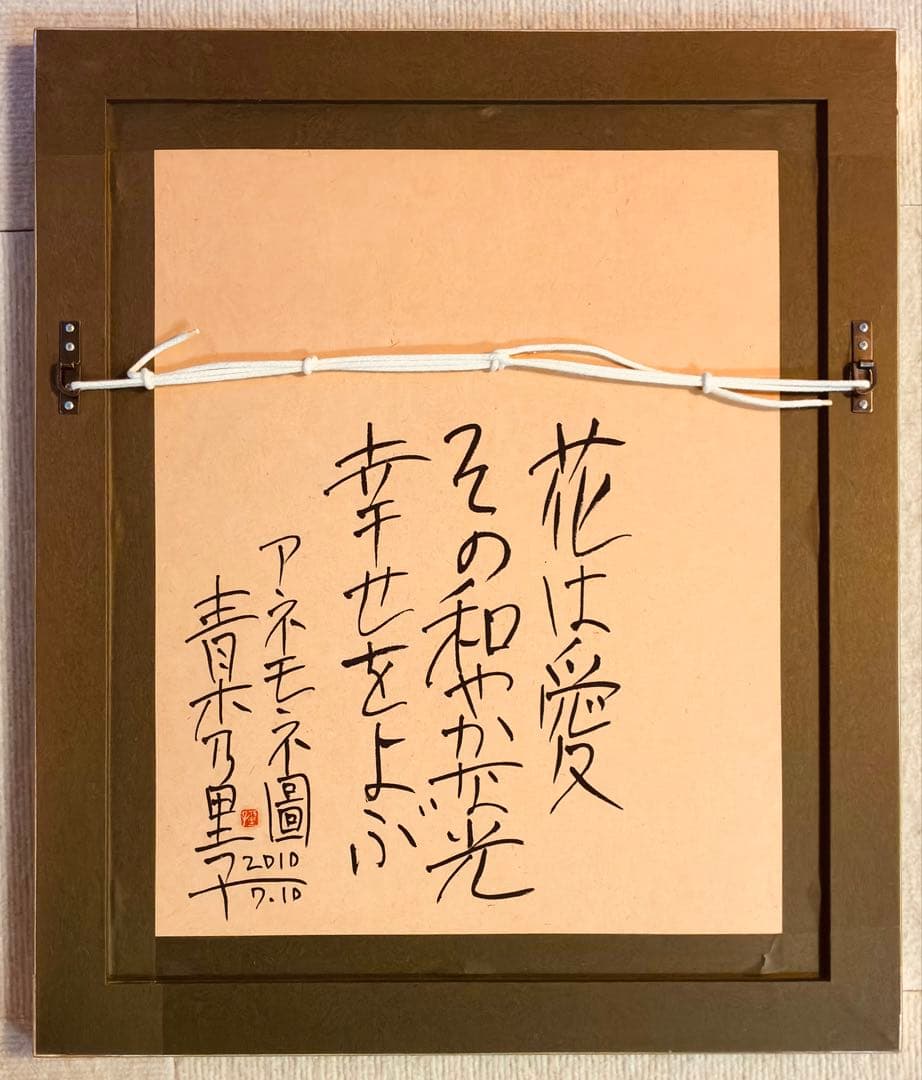 花は愛
その和やかな光
幸せをよぶ
アネモネ圖
2010
7.10
青木乃里子